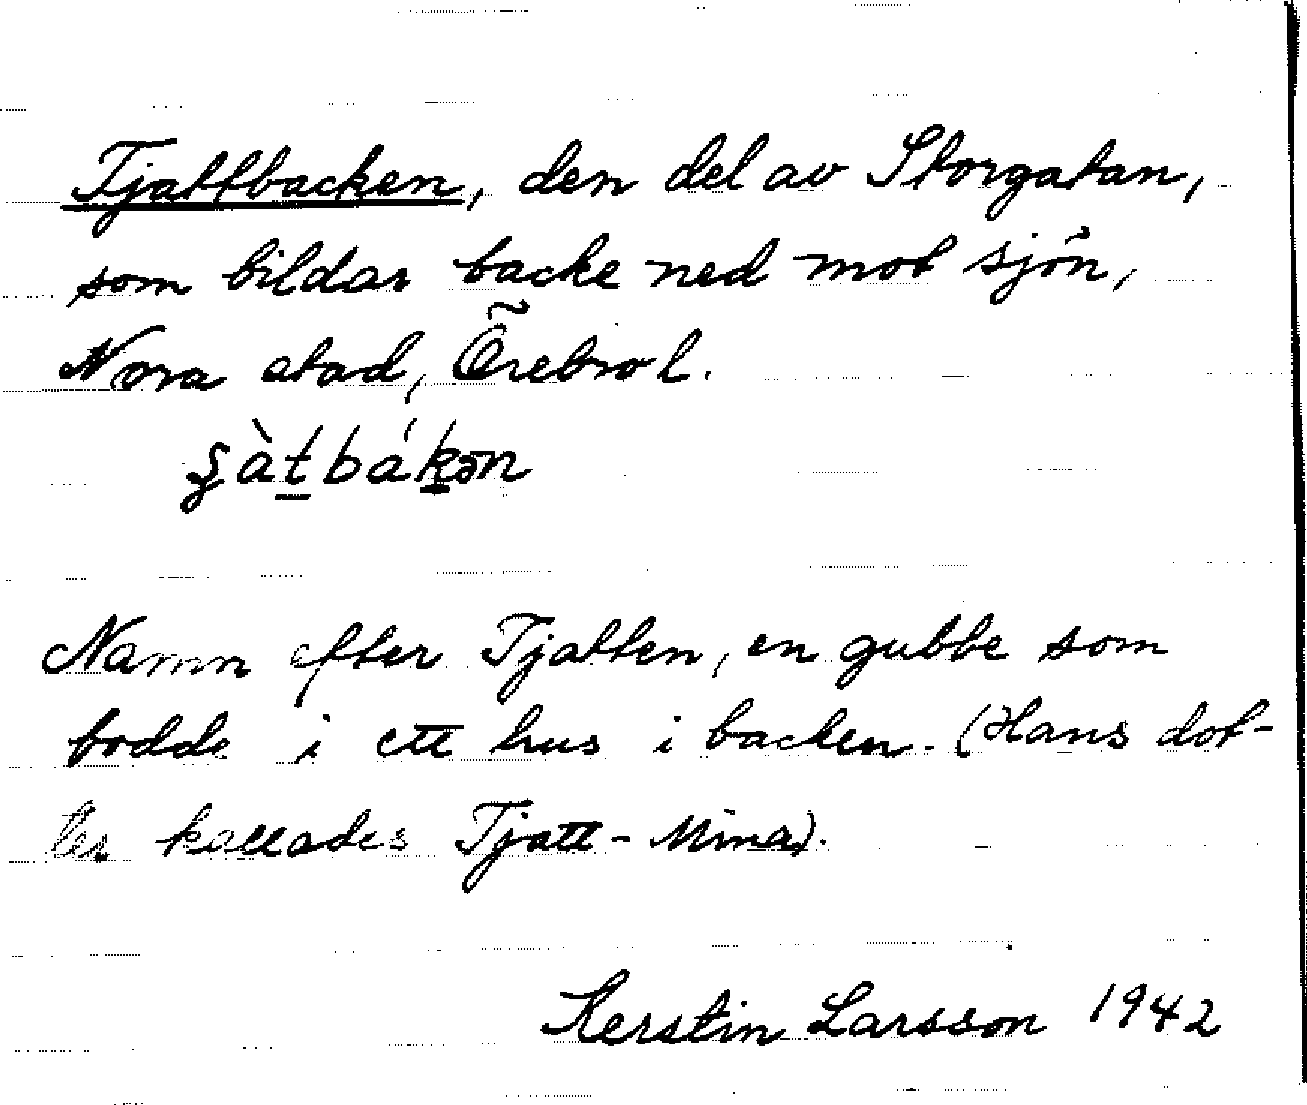 Tjattbacken, den del av Storgatan,
som bildar backe ned mot sjön,
Nora stad, Örebro l.
Namn efter Tjatten, en gubbe som
bodde i ett hus i backen. (Hans dot-
ter kallades Tjatt-Mina).
Kerstin Larsson 1942